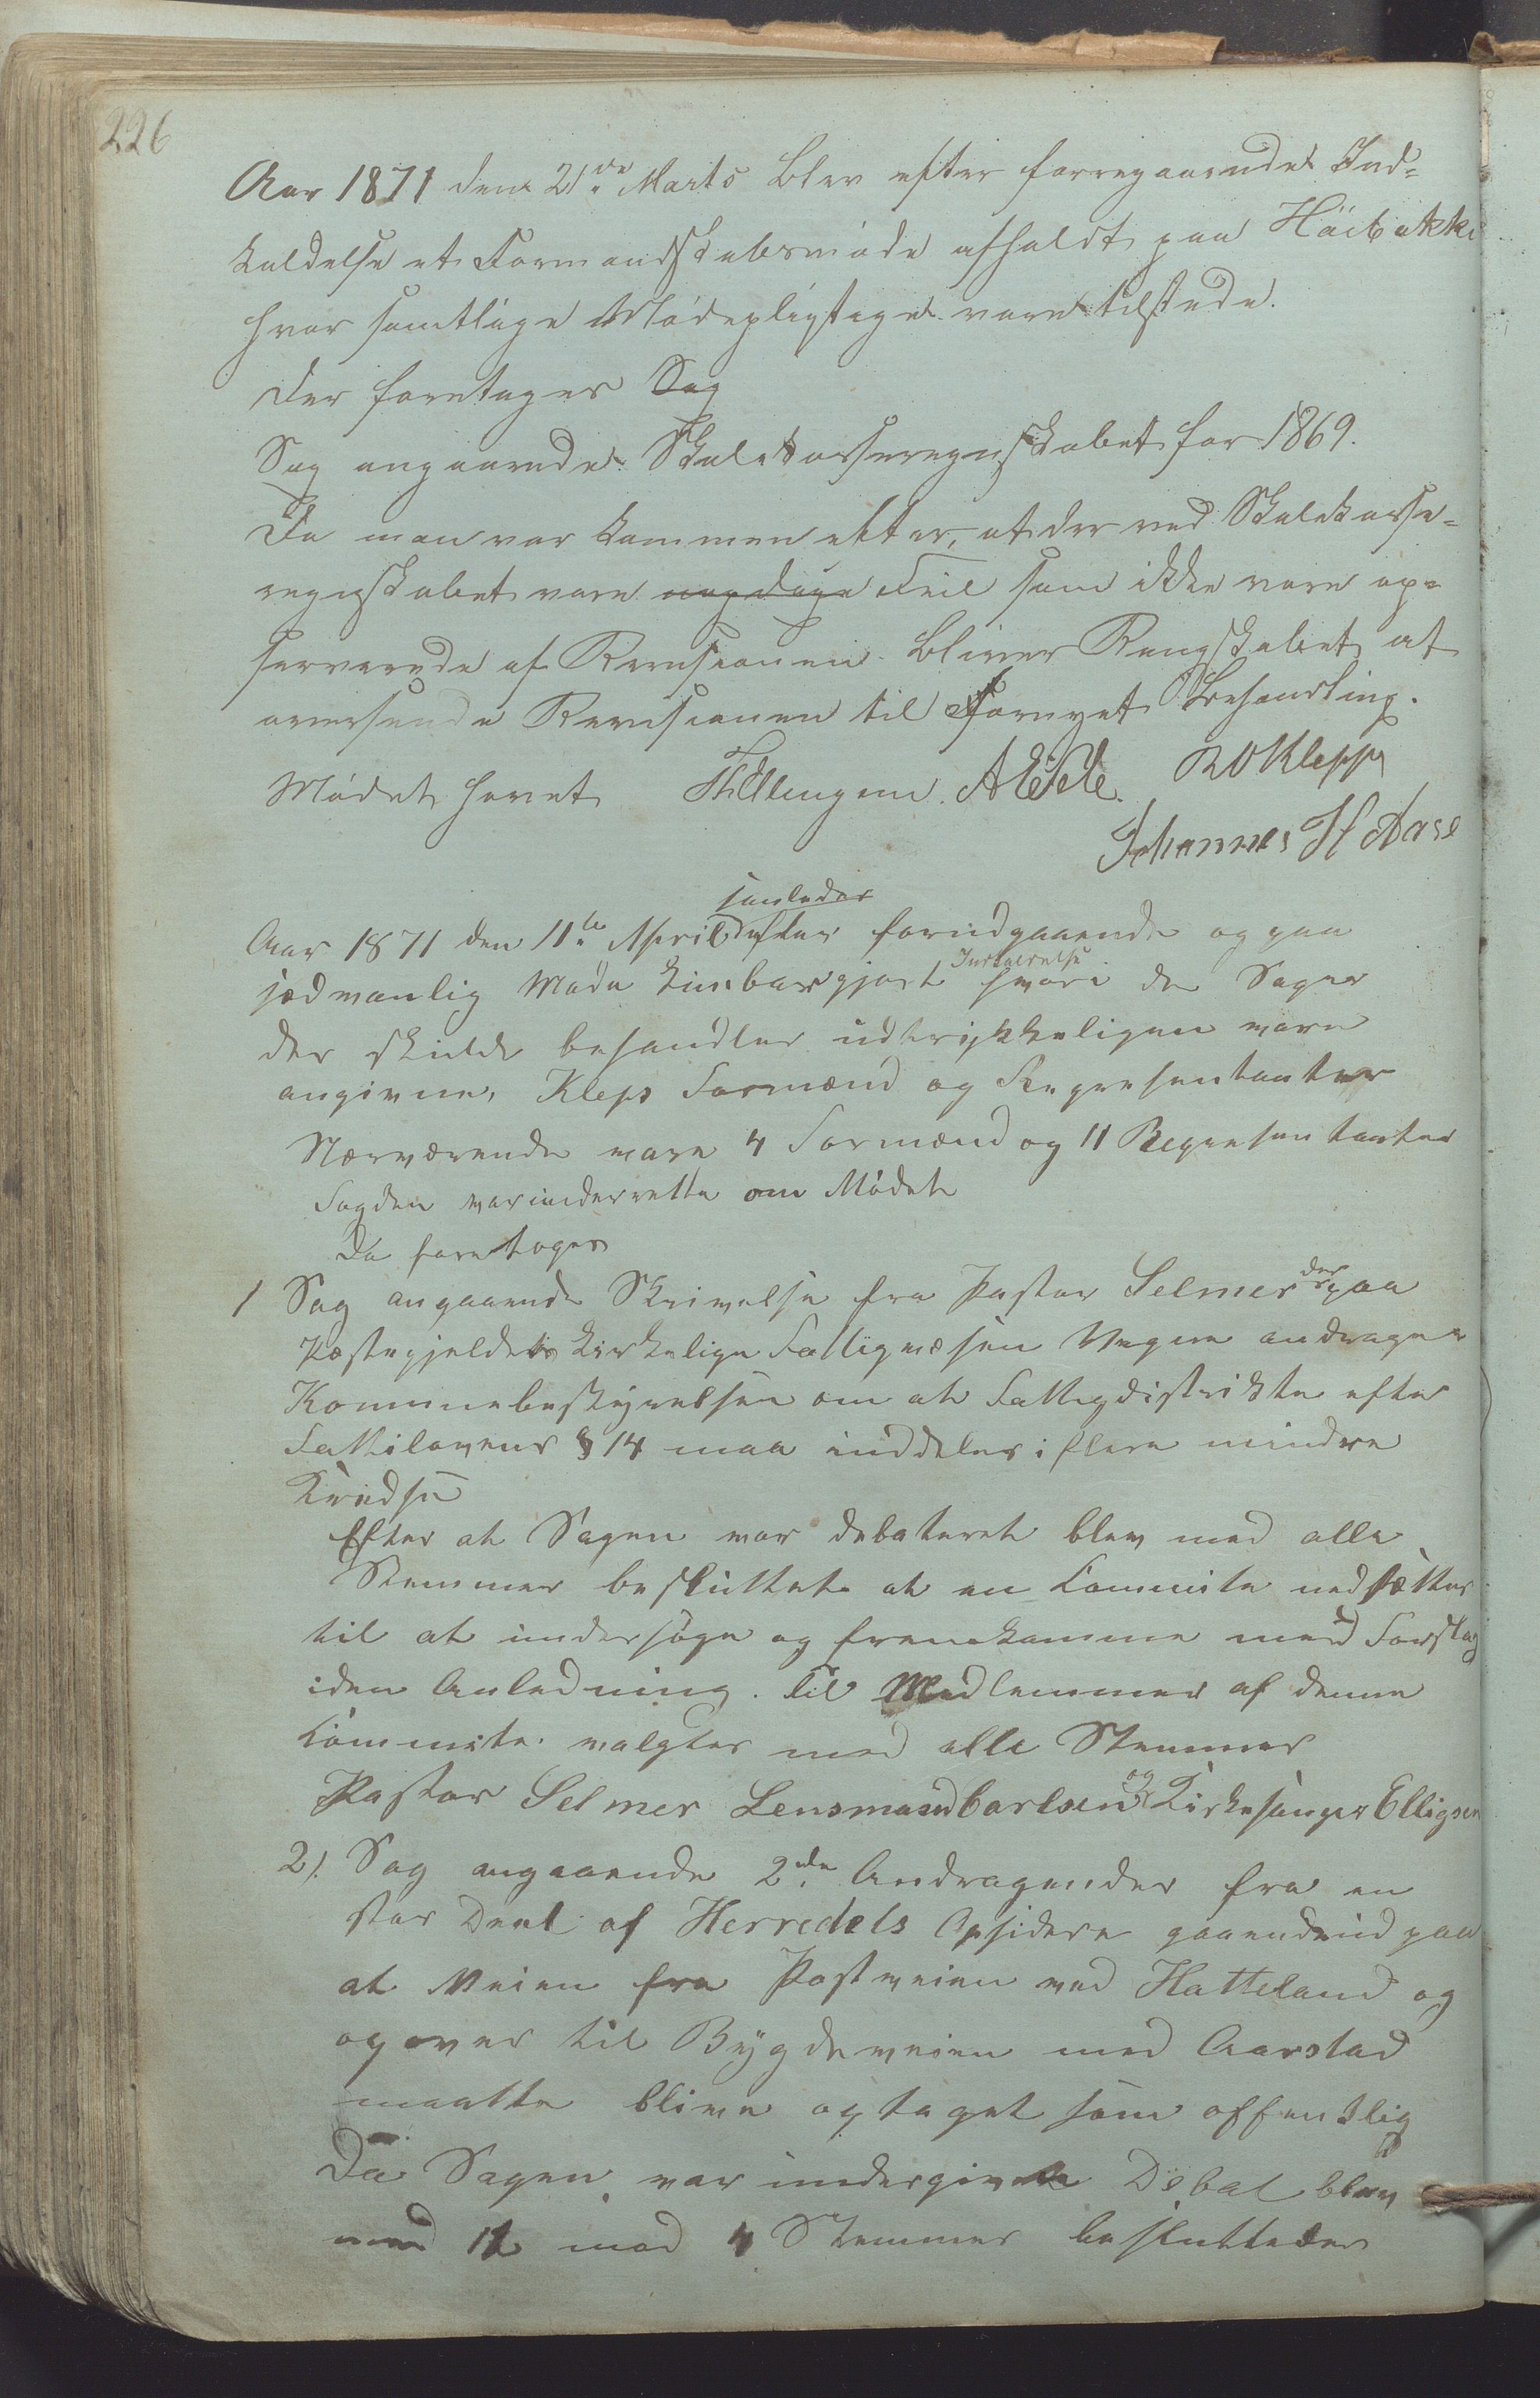 226
Aar 1871 den 21de Marts blev efter forregaaende Ind-
kaldelse et Formandskabsmøde afholdt paa Höibakke
hvor samtlige Mødepligtige vare tilstede.
Der foretages Sag
Sag angaaende Skolekasseregnskabet for 1869.
Da man var kommen etter, at der ved Skolekasse-
regnskabet vare nogdage Feil som ikke vare op-
serverede af Revisionen bliver Rengskabet at
oversende Revisionen til Fornyet Behandling.
Mødet hævet Th Ellingsen. A Eide. R O Klepp
Johannes H Aase
samledes
Aar 1871 den 11te April efter forudgaaende og paa
sædvanlig Maade kundbargjort Indkaldelse hvori de Sager
der skulde behandles udtrykkeligen vare
angivne, Kleps Formænd og Repræsentanter
Nærværende vare 4 Formænd og 11 Repræsentanter
Fogden var underrette om Mødet
Da foretoges
1 Sag angaaende Skrivelse fra Pastor Selmer der paa
Pæstegjeldets kirkelige Fattigvæsen Vegne andrager
Kommunebestyrelsen om at Fattigdistrikte efter
Fattilovens § 14 maa inddeles i flere mindre
Kredse
Efter at Sagen var debateret blev med alle
Stemmer besluttet at en Kommite nedsættes
til at undersøge og fremkomme med Forslag
iden Anledning. Til Medlemmer af denne
Kommite valgtes med alle Stemmer
Pastor Selmer Lensmand Carlsen og Kirkesanger Elligsen
2). Sag angaaende 2de Andragender fra en
stor Deel af Herredets Opsidere gaaende ud paa
at Veien fra Postveien ved Hatteland og
opover til Bygdeveien med Aarstad
maatte blive optaget som offentlig
Da Sagen var undergivet Debat blev
med 11 mod 4 Stemmer besluttedes